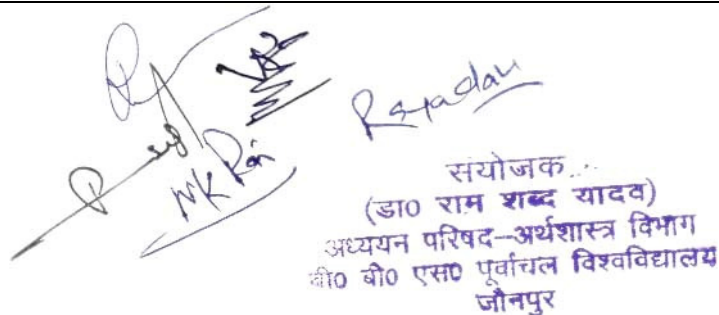 MK Rai
RSYadav
संयोजक
(डा० राम शब्द यादव)
अध्ययन परिषद–अर्थशास्त्र विभाग
वी० बी० एस० पूर्वांचल विश्वविद्यालय
जौनपुर